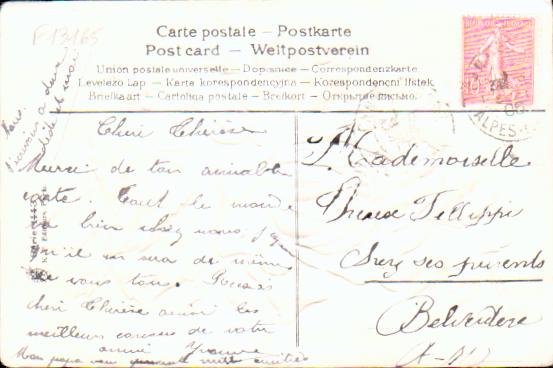 F13165
Carte postale – Postkarte
Post card – Weltpostverein
Union postale universelle – Dopisnice – Correspondenzkarte
Levelező Lap – Karta korespondencyjna – Korespondenčni lístek
Briefkaart – Cartolina postale – Brefkort – Открытое письмо.
ALPES
Cheri Thérèse
Merci de ton aimable
carte. Tout le monde
bien chez nous j'
qu'il en sera de même
de vous tous. Reçois
cheri Thérèse ainsi les
meilleurs caresses de votre
amie Yvonne
Mon papa mille amitiés
Mademoiselle
Therese
chez ses parents
Belvedere
A-M